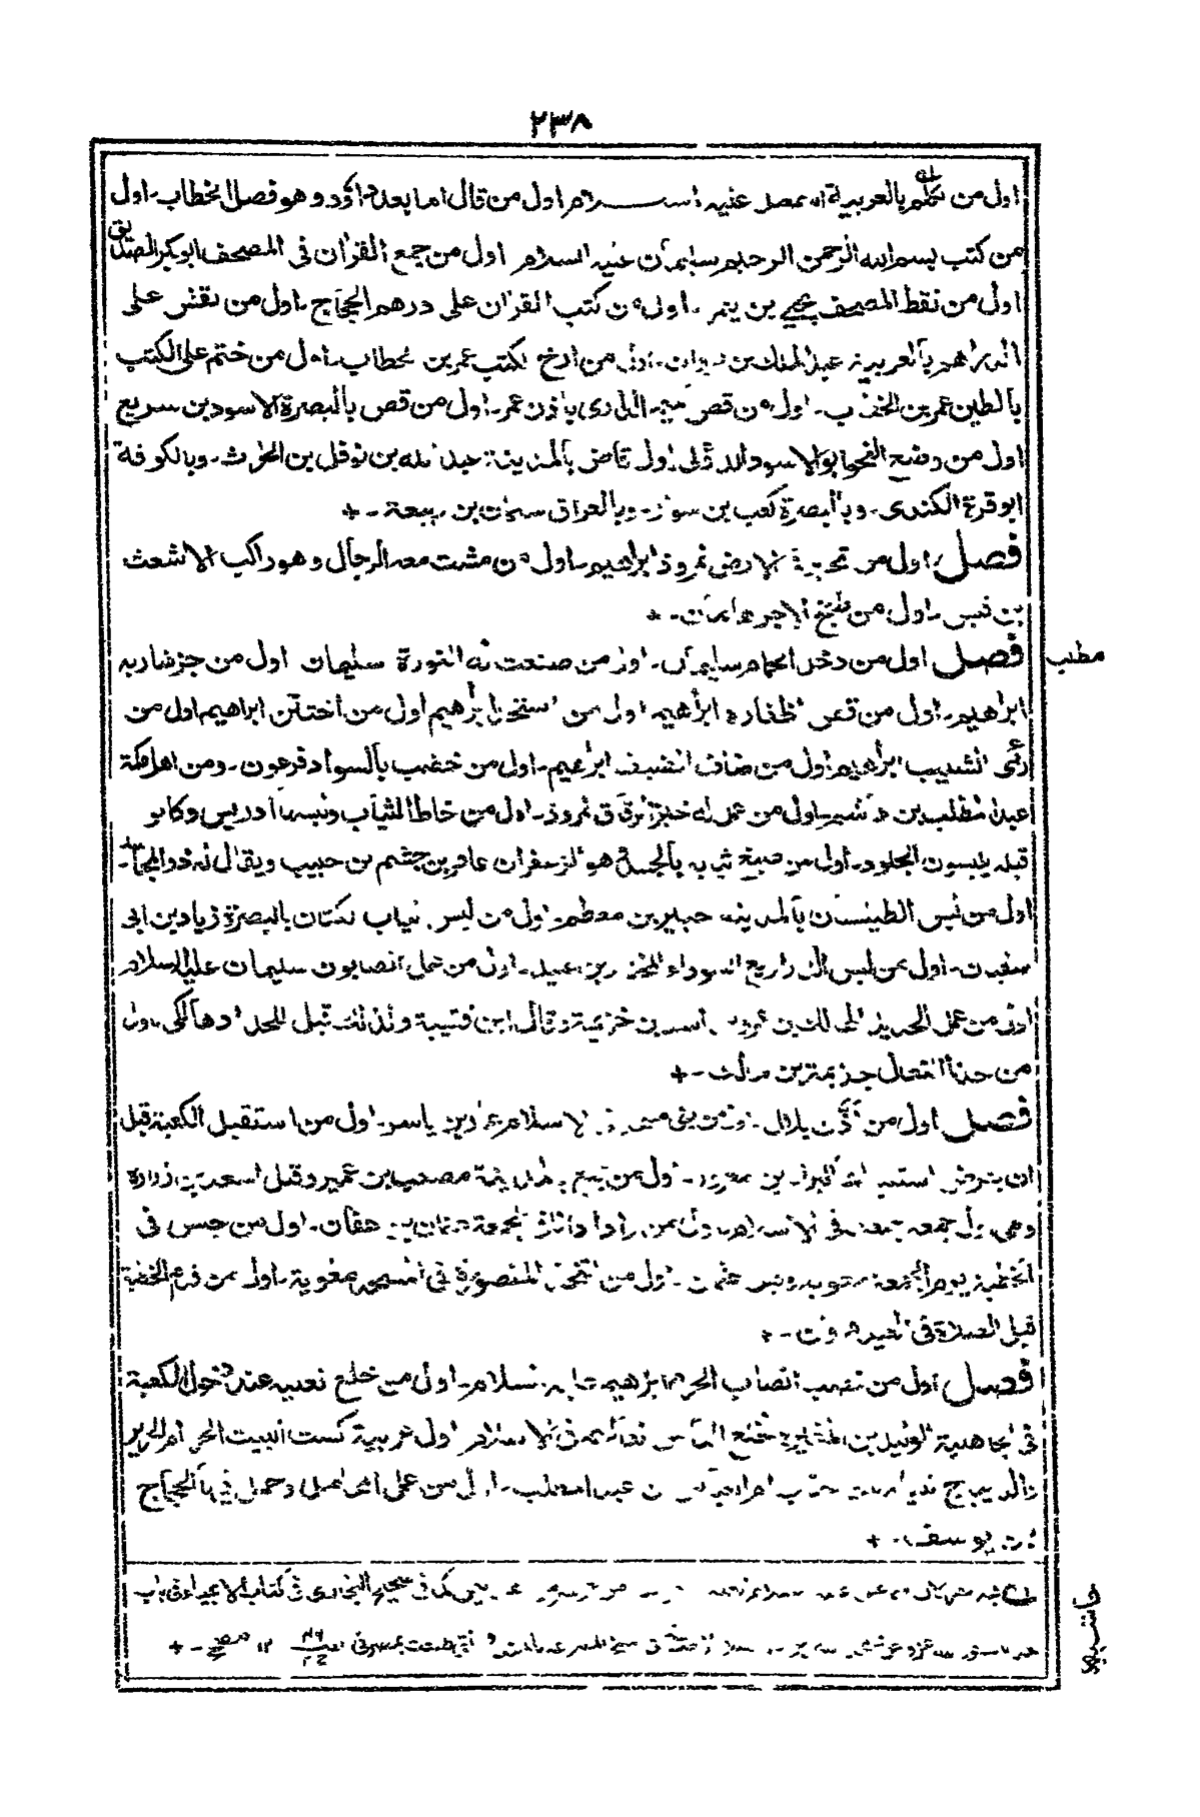 ٢٣٨
اول من تكلم بالعربية عليه السلام اول من قال اما بعد داؤد وهو فصل الخطاب۔ اول
من كتب بسم الله الرحمن الرحيم سليمان عليه السلام اول من جمع القران فى المصحف ابو بكر الصديق
اول من نقط المصحف يحيى بن يعمر۔ اول من كتب القران على درهم الحجاج۔ اول من نقش على
الدراهم بالعربية عبد الملك بن مروان۔ اول من ارخ الكتب عمر بن الخطاب۔ اول من ختم على الكتب
بالطين عمر بن الخطاب۔ اول من قص تميم الدارى باذن عمر۔ اول من قص بالبصرة الاسود بن سريع
اول من وضع النحو ابو الاسود الدؤلى اول قاض بالمدينة عبد الله بن نوفل بن الحرث۔ وبالكوفة
ابو قرة الكندى۔ وبالبصرة كعب بن سوار۔ وبالعراق سلمان بن ربيعة۔ +
فصل اول من الارض نمروذ ابراهيم۔ اول من مشت معه الرجال وهو راكب الاشعث
بن قيس۔ اول من طبخ الاجر هامان۔ +
مطلب
فصل اول من دخل الحمام سليمان۔ اول من صنعت له النورة سليمان اول من جز شاربه
ابراهيم۔ اول من قص اظفاره ابراهيم اول من استحد ابراهيم اول من اختتن ابراهيم اول من
رئى الشيب ابراهيم اول من ضاف الضيف ابراهيم۔ اول من خضب بالسواد فرعون۔ ومن اهل مكة
عبد المطلب بن هاشم۔ اول من عمل له خبز الرقاق نمروذ۔ اول من خاط الثياب ولبسها ادريس وكانو
قبله يلبسون الجلود۔ اول من صبغ ثيابه هو الزعفران عامر بن جشم بن حبيب ويقال له ذو المجاسد
اول من لبس الطيلسان بالمدينة جبير بن مطعم۔ اول من لبس ثياب الكتان بالبصرة زياد بن ابى
سفين۔ اول من لبس الدراريع السوداء المختار بن عبيد۔ اول من عمل الصابون سليمان عليه السلام
اول من عمل الحديد الهالك بن اسد بن خزيمة وقال ابن قتيبة ولذلك قيل للحداد هالكى۔ اول
من حذا النعال جذيمة بن مالك۔ +
فصل اول من اذن بلال۔ اول من بنى مسجدا فى الاسلام عمار بن ياسر۔ اول من استقبل الكعبة قبل
ان البراء بن معرور۔ اول من جمع بالمدينة مصعب بن عمير وقيل اسعد بن زراره
وهى اول جمعة جمعت فى الاسلام۔ اول من زاد اذان الجمعة عثمان بن عفان۔ اول من جلس فى
الخطبة يوم الجمعة معوية وقيل عثمان۔ اول من اتخذ المقصورة فى المسجد معوية۔ اول من قدم الخطبة
قبل الصلاة فى العيد مروان۔ +
فصل اول من نصب انصاب الحرم ابراهيم عليه السلام۔ اول من خلع نعليه عند دخول الكعبة
فى الجاهلية الوليد بن المغيرة فخلع الناس نعالهم فى الاسلام اول عربية كست البيت الحرام الحرير
والديباج ام عبد المطلب۔ اول من عمل المحامل وحمل فيها الحجاج
بن يوسف۔ +
حاشيه
فى صحيح البخارى فى كتاب الانبياء فى باب